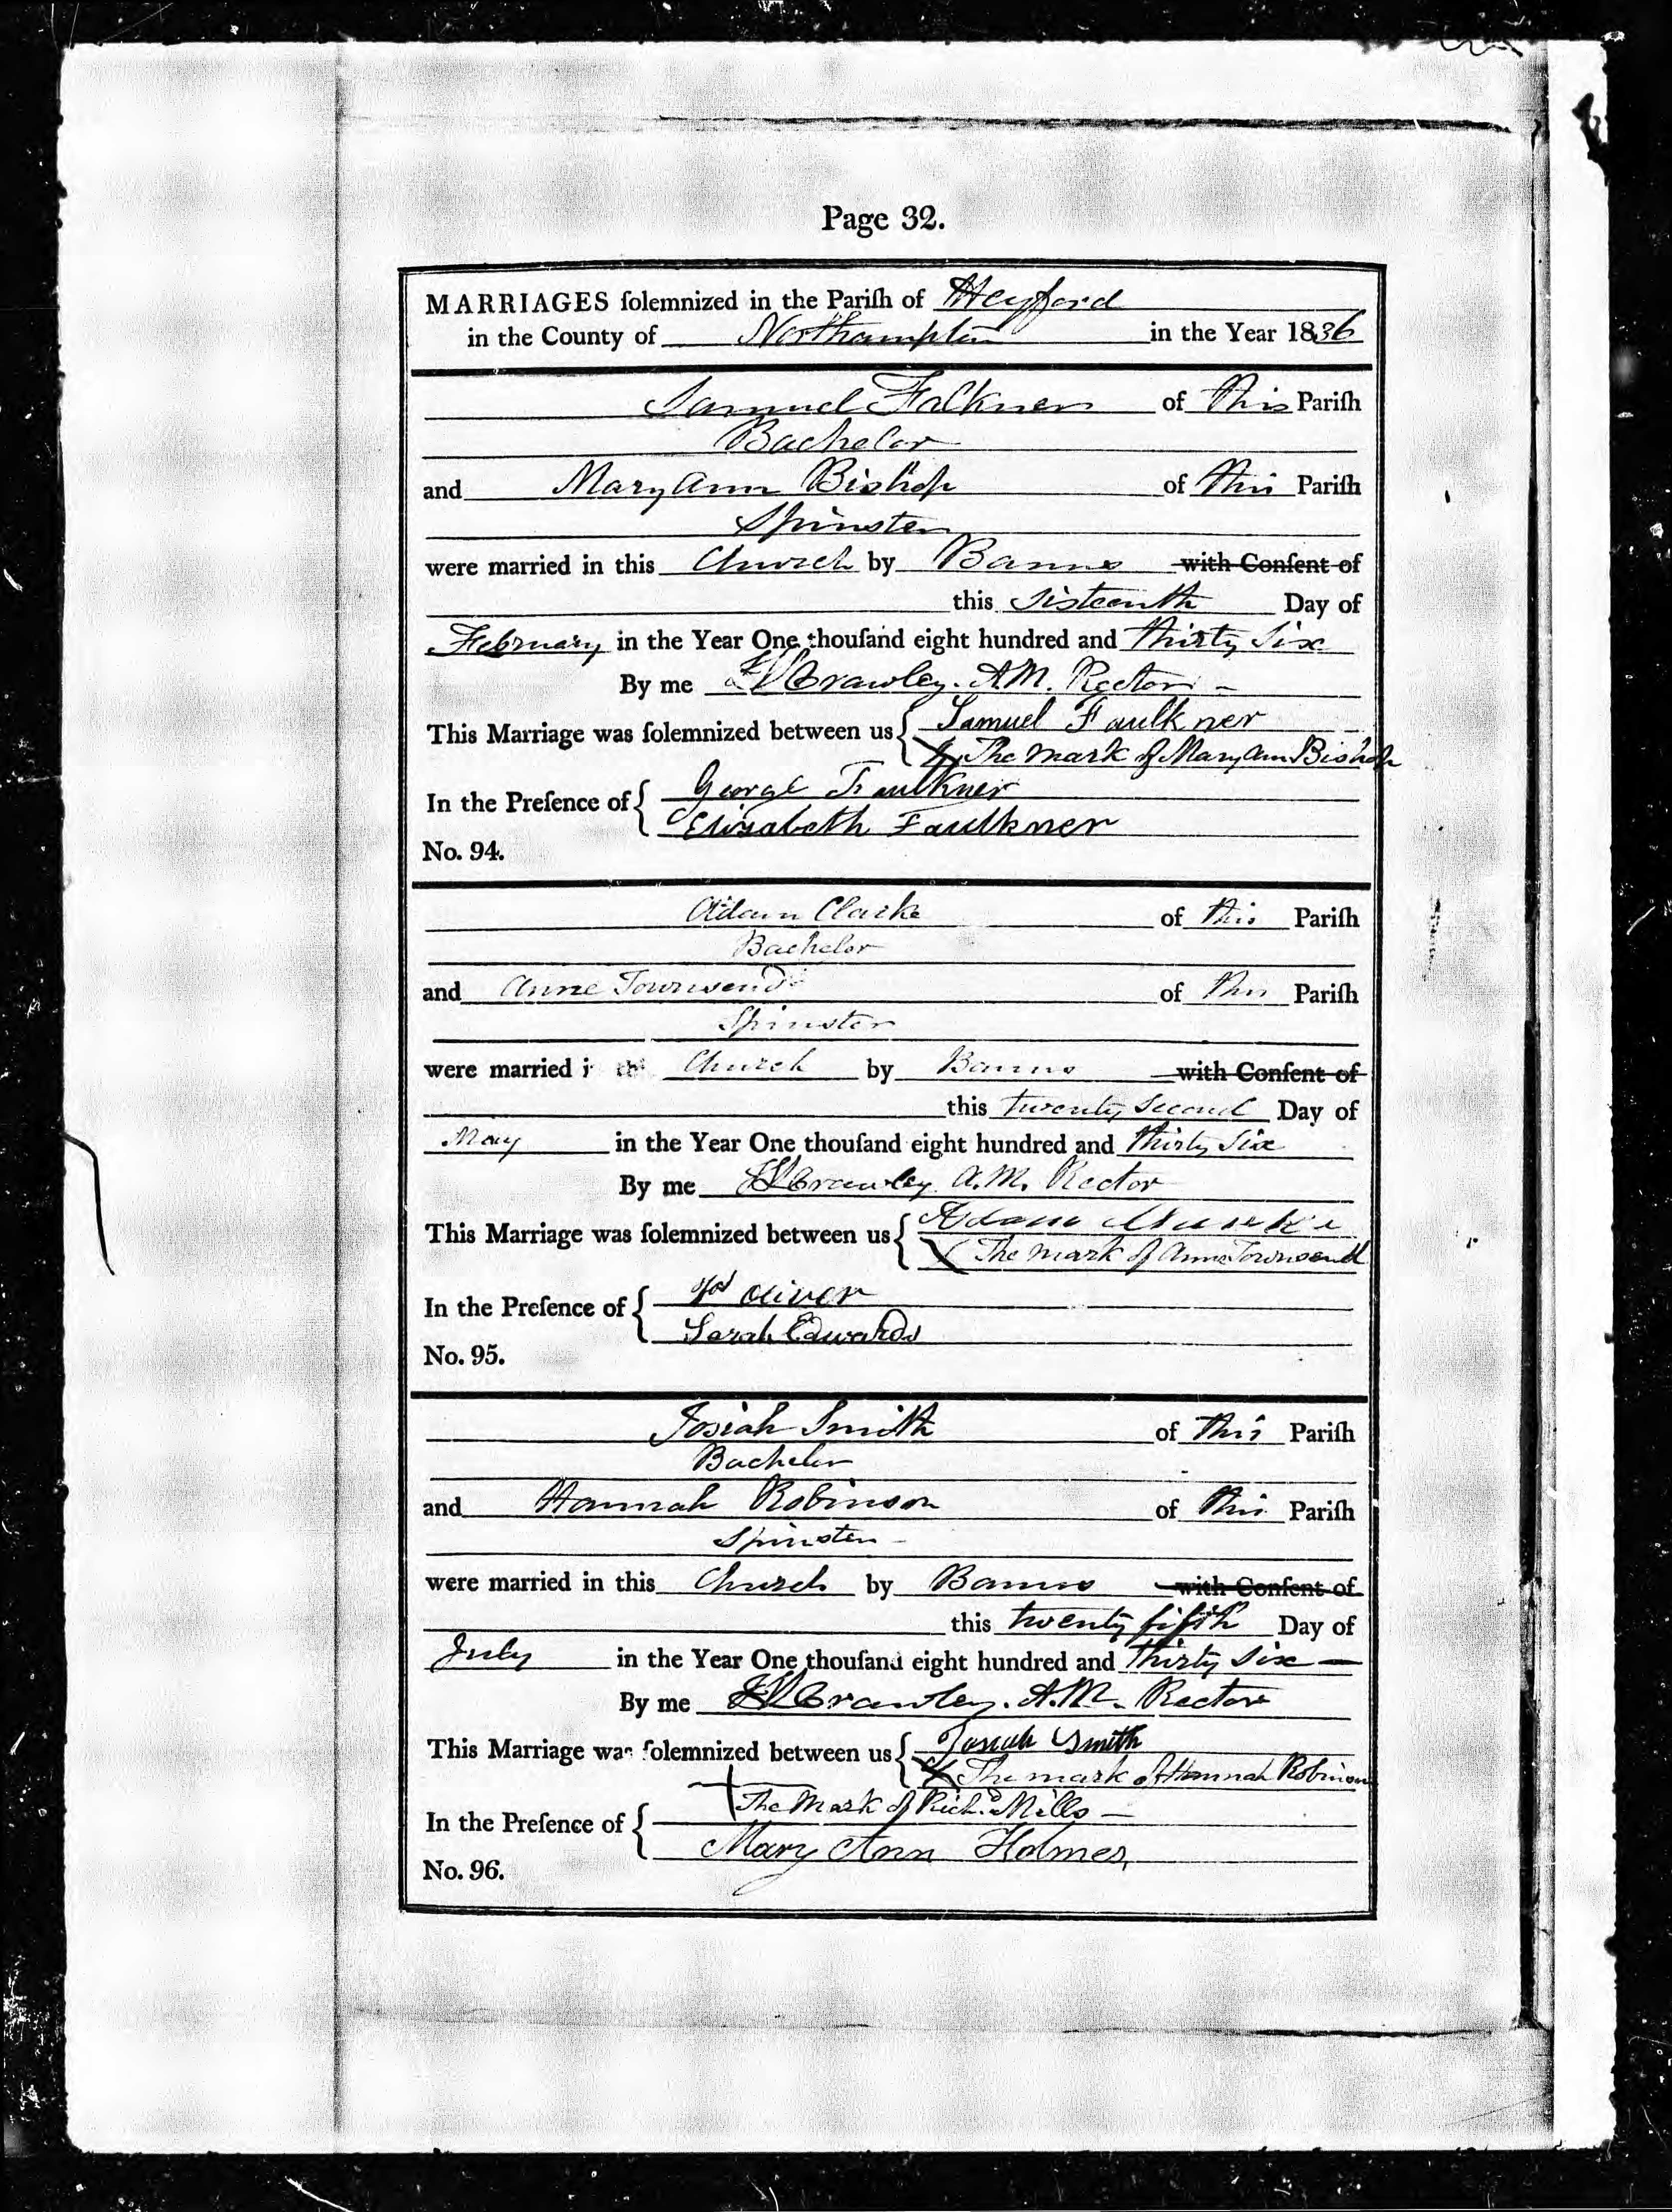 Page 32.
MARRIAGES ſolemnized in the Pariſh of Heyford
in the County of Northampton in the Year 1836
Samuel Falkner of this Pariſh
Bachelor
and Mary Ann Bishop of this Pariſh
Spinster
were married in this Church by Banns with Conſent of
this Sixteenth Day of
February in the Year One thouſand eight hundred and thirty Six
By me Crawley. A.M. Rector
This Marriage was ſolemnized between us { Samuel Faulkner
X The mark of Mary Ann Bishop
In the Preſence of { George Faulkner
Elizabeth Faulkner
No. 94.
Adam Clarke of this Pariſh
Bachelor
and Anne Townsend of this Pariſh
Spinster
were married i this Church by Banns with Conſent of
this twenty Second Day of
May in the Year One thouſand eight hundred and thirty Six
By me Crawley A.M. Rector
This Marriage was ſolemnized between us { Adam Clarke
X The mark of Anne Townsend
In the Preſence of { Oliver
Sarah Edwards
No. 95.
Josiah Smith of this Pariſh
Bachelor
and Hannah Robinson of this Pariſh
Spinster
were married in this Church by Banns with Conſent of
this twenty fifth Day of
July in the Year One thouſand eight hundred and thirty Six
By me Crawley. A.M. Rector
This Marriage was ſolemnized between us { Josiah Smith
X The mark of Hannah Robinson
In the Preſence of { The Mark of Richd. Mills
Mary Ann Holmes
No. 96.